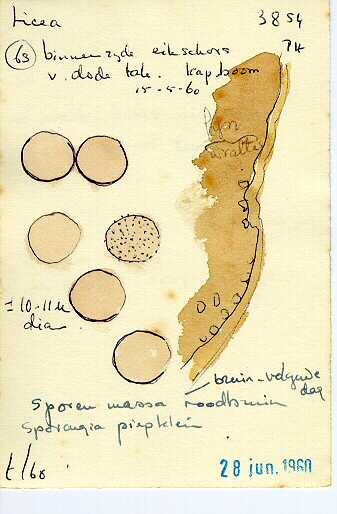 Licea 3854
63 binnenzyde eikschors PH
v. dode tak. kapboom
15-5-60
= 10-11 µ
dia.
bruin - volgende
dag
Sporen massa roodbruin
Sporangia piepklein
t/60
28 jun. 1960